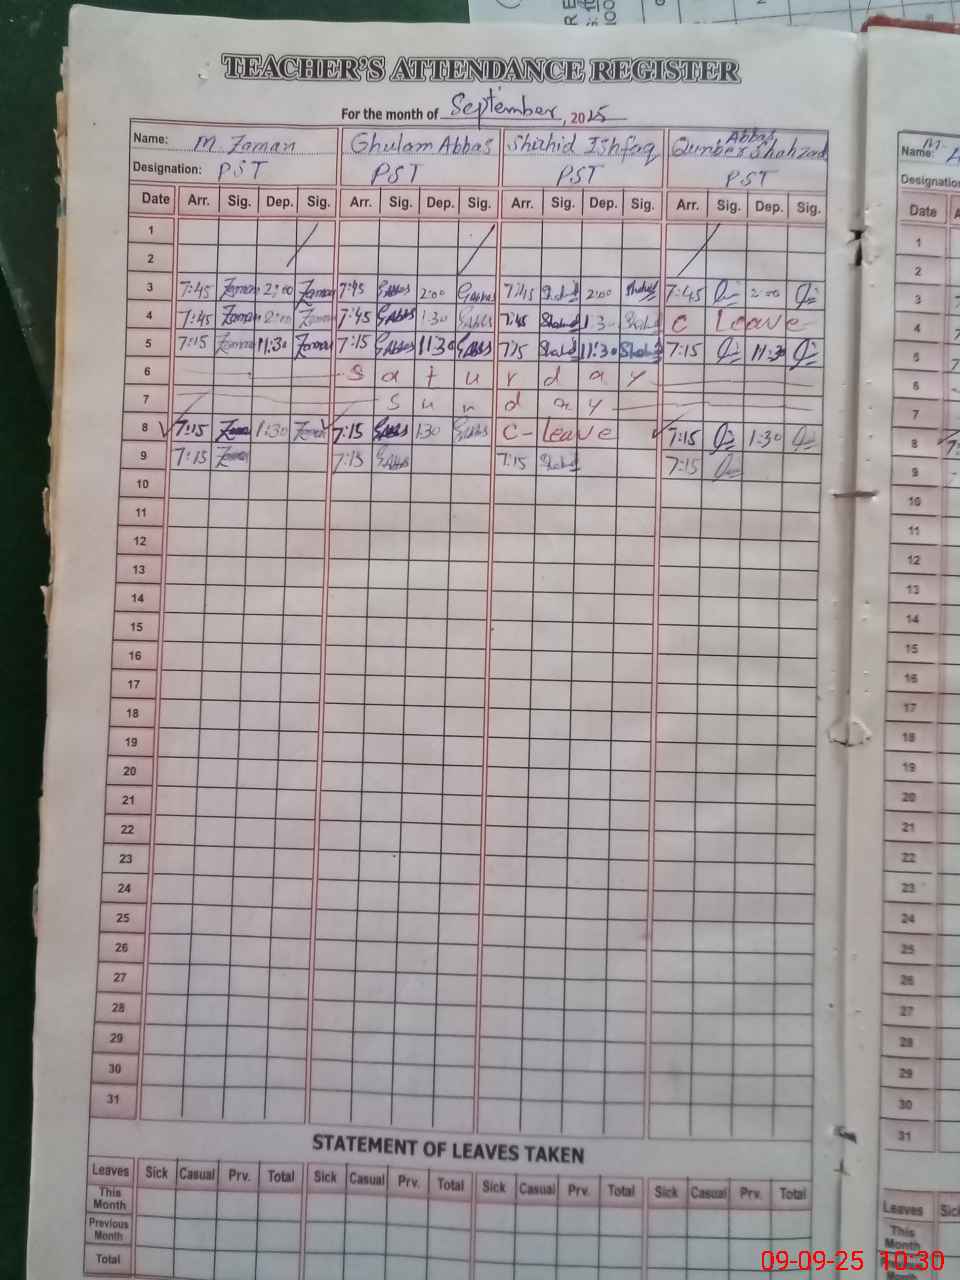 TEACHER'S ATTENDANCE REGISTER
For the month of September, 2025
Name: M. Zaman Ghulam Abbas Shahid Ishfaq Qumber Abbas Shahzad
Designation: PST PST PST PST
Date Arr. Sig. Dep. Sig. Arr. Sig. Dep. Sig. Arr. Sig. Dep. Sig. Arr. Sig. Dep. Sig.
1
2
3 7:45 Zaman 2:00 Zaman 7:45 GAbbas 2:00 GAbbas 7:45 Shahid 2:00 Shahid 7:45 2:00
4 7:45 Zaman 2:00 Zaman 7:45 GAbbas 1:30 GAbbas 7:45 Shahid 1:30 Shahid C Leave
5 7:15 Zaman 11:30 Zaman 7:15 GAbbas 11:30 GAbbas 7:15 Shahid 11:30 Shahid 7:15 11:30
6 Saturday
7 Sunday
8 7:15 Zaman 1:30 Zaman 7:15 GAbbas 1:30 GAbbas C-Leave 7:15 1:30
9 7:15 Zaman 7:15 GAbbas 7:15 Shahid 7:15
10
11
12
13
14
15
16
17
18
19
20
21
22
23
24
25
26
27
28
29
30
31
STATEMENT OF LEAVES TAKEN
Leaves Sick Casual Prv. Total Sick Casual Prv. Total Sick Casual Prv. Total Sick Casual Prv. Total
This Month
Previous Month
Total
Name: M.
Designation
Date
1
2
3
4
5
6
7
8
9
10
11
12
13
14
15
16
17
18
19
20
21
22
23
24
25
26
27
28
29
30
31
Leaves Sick
This Month
Previous Month
09-09-25 10:30